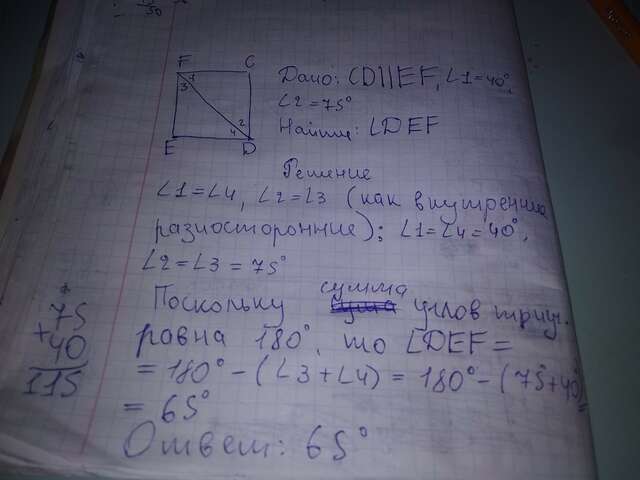 F C
1
3
2
4
E D
Дано: CD||EF, ∠1=40°,
∠2=75°
Найти: ∠DEF
Решение
∠1=∠4, ∠2=∠3 (как внутренние
разносторонние); ∠1=∠4=40°,
∠2=∠3=75°
Поскольку сумма углов триуг.
равна 180°, то ∠DEF=
=180°-(∠3+∠4)=180°-(75+40)=
=65°
Ответ: 65°
75
+40
115